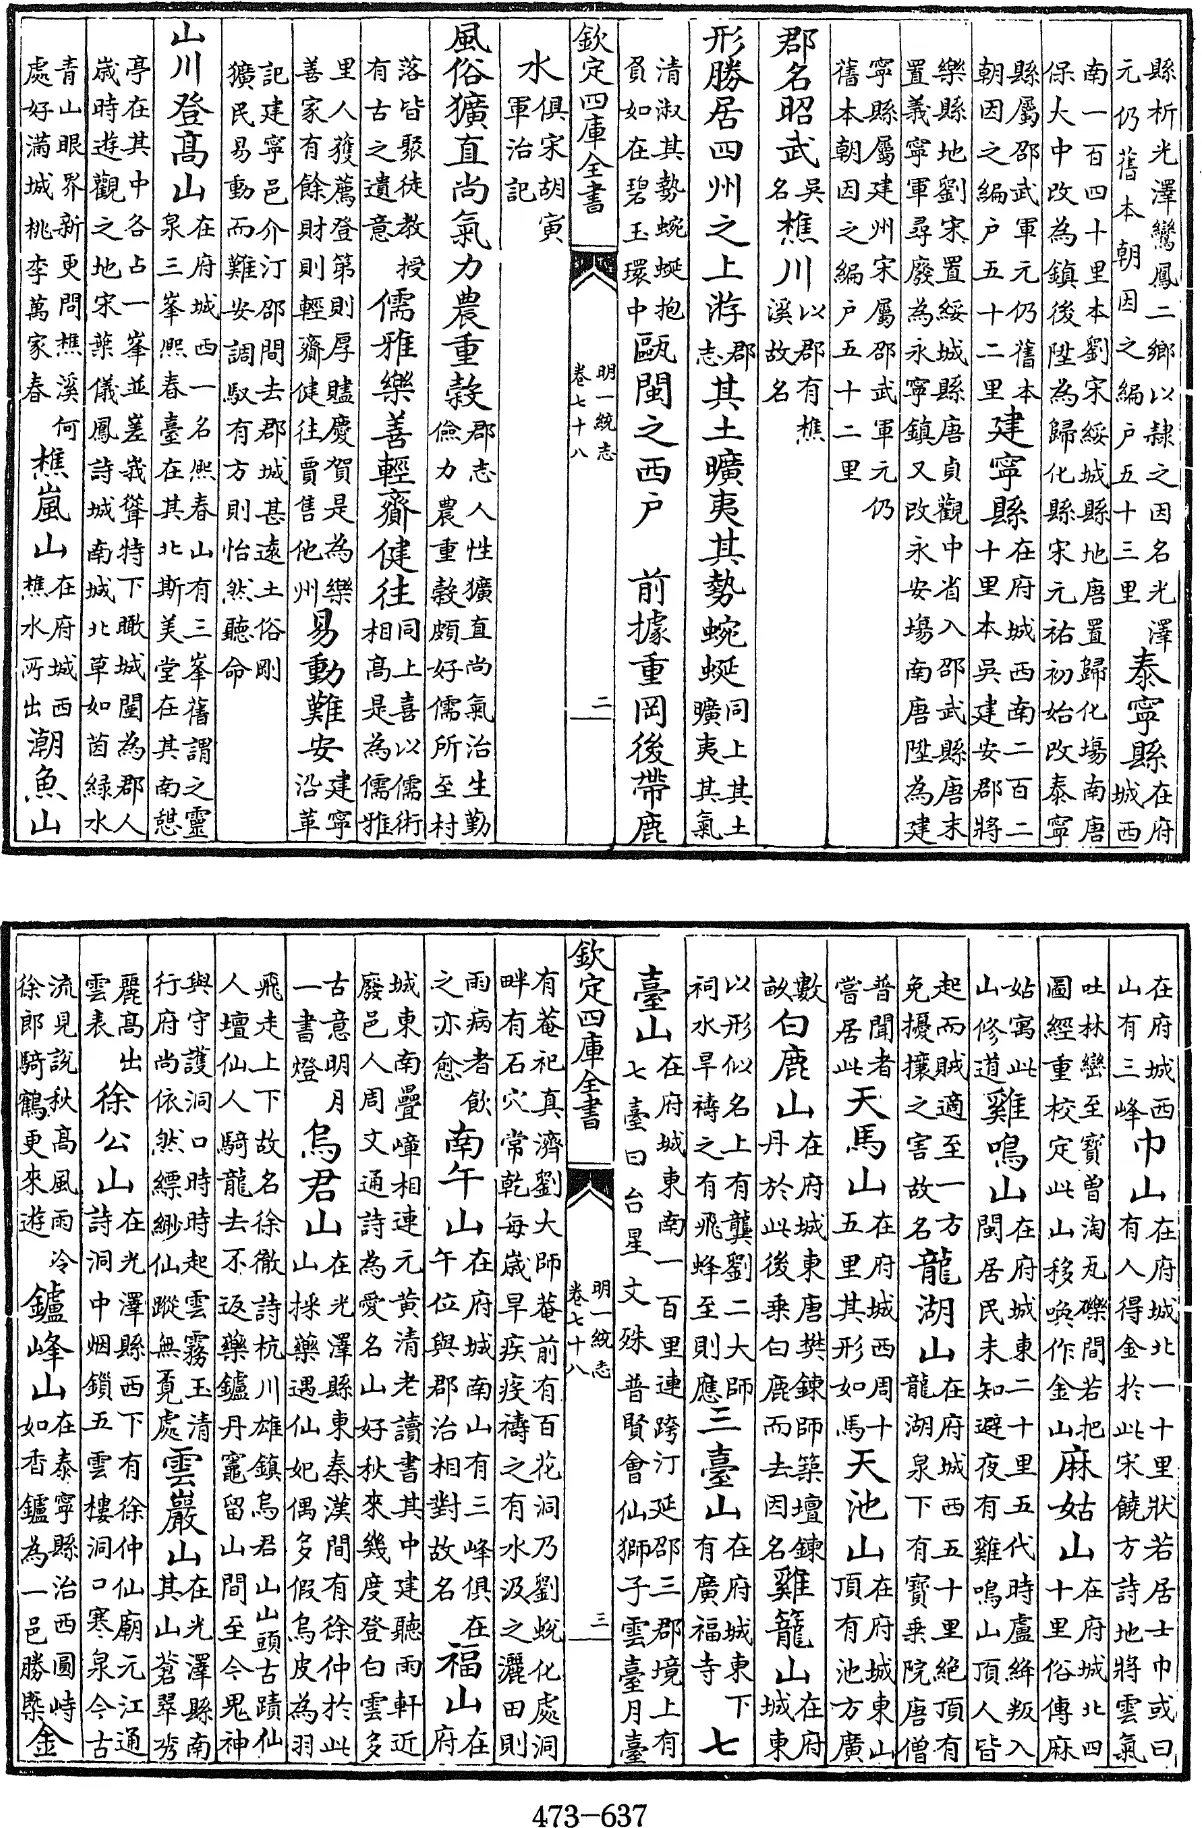 縣析光澤鸞鳳二鄉以隸之因名光澤元仍舊本朝因之編戶五十三里泰寧縣在府城西
南一百四十里本劉宋綏城縣地唐置歸化場南唐保大中改為鎮後陞為歸化縣宋元祐初始改泰寧
縣屬邵武軍元仍舊本朝因之編戶五十二里建寧縣在府城西南二百二十里本吳建安郡將
樂縣地劉宋置綏城縣唐貞觀中省入邵武縣唐末置義寧軍尋廢為永寧鎮又改永安場南唐陞為建
寧縣屬建州宋屬邵武軍元仍舊本朝因之編戶五十二里
郡名昭武吳名樵川以郡有樵溪故名
形勝居四州之上游郡志其土曠夷其勢蜿蜒同上其土曠夷其氣
清淑其勢蜿蜒抱負如在碧玉環中甌閩之西戶 前據重岡後帶鹿
欽定四庫全書 明一統志 卷七十八 二
水俱宋胡寅軍治記
風俗獷直尚氣力農重穀郡志人性獷直尚氣治生勤儉力農重穀頗好儒所至村
落皆聚徒教授有古之遺意儒雅樂善輕齎健往同上喜以儒術相高是為儒雅
里人獲薦登第則厚贐慶賀是為樂善家有餘財則輕齎健往賈售他州易動難安建寧沿革
記建寧邑介汀邵間去郡城甚遠土俗剛獷民易動而難安調馭有方則怡然聽命
山川登高山在府城西一名熙春山有三峯舊謂之靈泉三峯熙春臺在其北斯美堂在其南憇
亭在其中各占一峯並嵳峩聳特下瞰城闉為郡人歲時遊觀之地宋葉儀鳳詩城南城北草如茵緑水
青山眼界新更問樵溪何處好滿城桃李萬家春樵嵐山在府城西樵水所出潮魚山
在府城西山有三峰巾山在府城北一十里狀若居士巾或曰有人得金於此宋饒方詩地將雲氣
吐林巒至寶曽淘瓦礫間若把圖經重校定此山移喚作金山麻姑山在府城北四十里俗傳麻
姑寓此山修道雞鳴山在府城東二十里五代時盧絳叛入閩居民未知避夜有雞鳴山頂人皆
起而賊適至一方免擾攘之害故名龍湖山在府城西五十里絶頂有龍湖泉下有寳乗院唐僧
普聞者嘗居此天馬山在府城西周十五里其形如馬天池山在府城東山頂有池方廣
數畝白鹿山在府城東唐樊錬師築壇錬丹於此後乗白鹿而去因名雞籠山在府城東
以形似名上有龔劉二大師祠水旱禱之有飛蜂至則應三臺山在府城東下有廣福寺七
臺山在府城東南一百里連跨汀延邵三郡境上有七臺曰台星文殊普賢會仙獅子雲臺月臺
欽定四庫全書 明一統志 卷七十八 三
有菴祀真濟劉大師菴前有百花洞乃劉蛻化處洞畔有石穴常乾每歲旱疾疫禱之有水汲之灑田則
雨病者飲之亦愈南午山在府城南山有三峰俱在午位與郡治相對故名福山在府
城東南疊嶂相連元黄清老讀書其中建聽雨軒近廢邑人周文通詩為愛名山好秋來幾度登白雲多
古意明月一書燈烏君山在光澤縣東秦漢間有徐仲於此山採藥遇仙妃偶多假烏皮為羽
飛走上下故名徐徹詩杭川雄鎮烏君山山頭古蹟仙人壇仙人騎龍去不返藥鑪丹竈留山間至今鬼神
與守護洞口時時起雲霧玉清行府尚依然縹緲仙蹤無覔處雲巖山在光澤縣南其山蒼翠秀
麗高出雲表徐公山在光澤縣西下有徐仲仙廟元江通詩洞中烟鎖五雲樓洞口寒泉今古
流見說秋高風雨冷徐郎騎鶴更來遊鑪峰山在泰寧縣治西圓峙如香鑪為一邑勝槩金
473-637